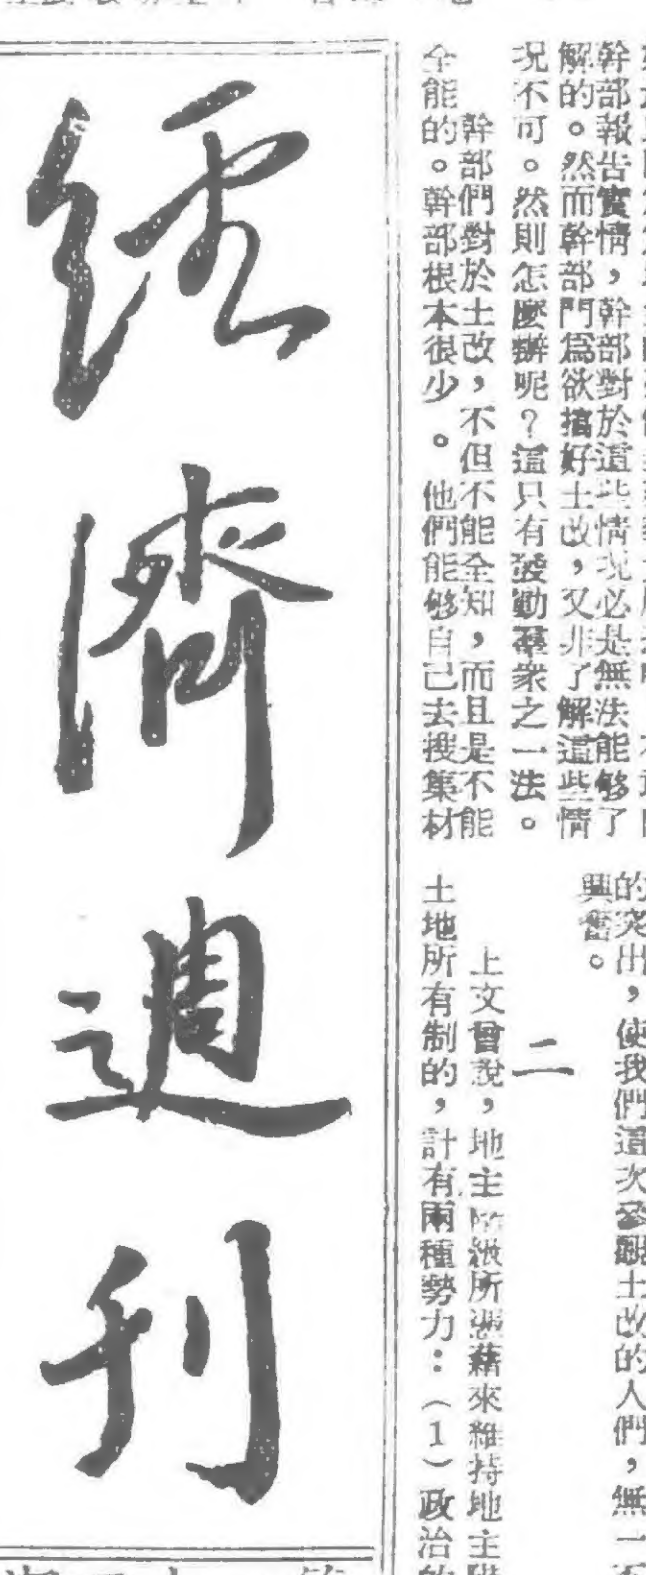 幹部報告實情，幹部對於這些情況必是無法能够了
解的。然而幹部門爲欲搞好土改，又非了解這些情
況不可。然則怎麼辦呢？這只有發動羣衆之一法。
幹部們對於土改，不但不能全知，而且是不能
全能的。幹部根本很少。他們能够自己去搜集材
的突出，使我們這次參觀土改的人們，無一不
興奮。
二
上文曾說，地主階級所憑藉來維持地主階
土地所有制的，計有兩種勢力：（1）政治的
經濟週刊